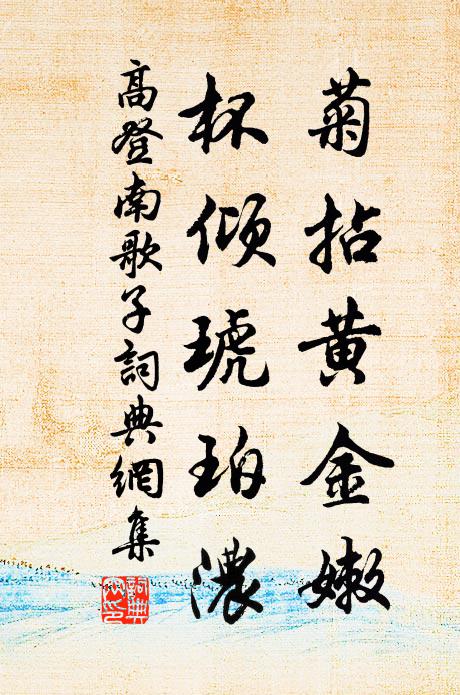 菊拈黄金嫩
杯傾琥珀濃
高登南歌子詞典網集